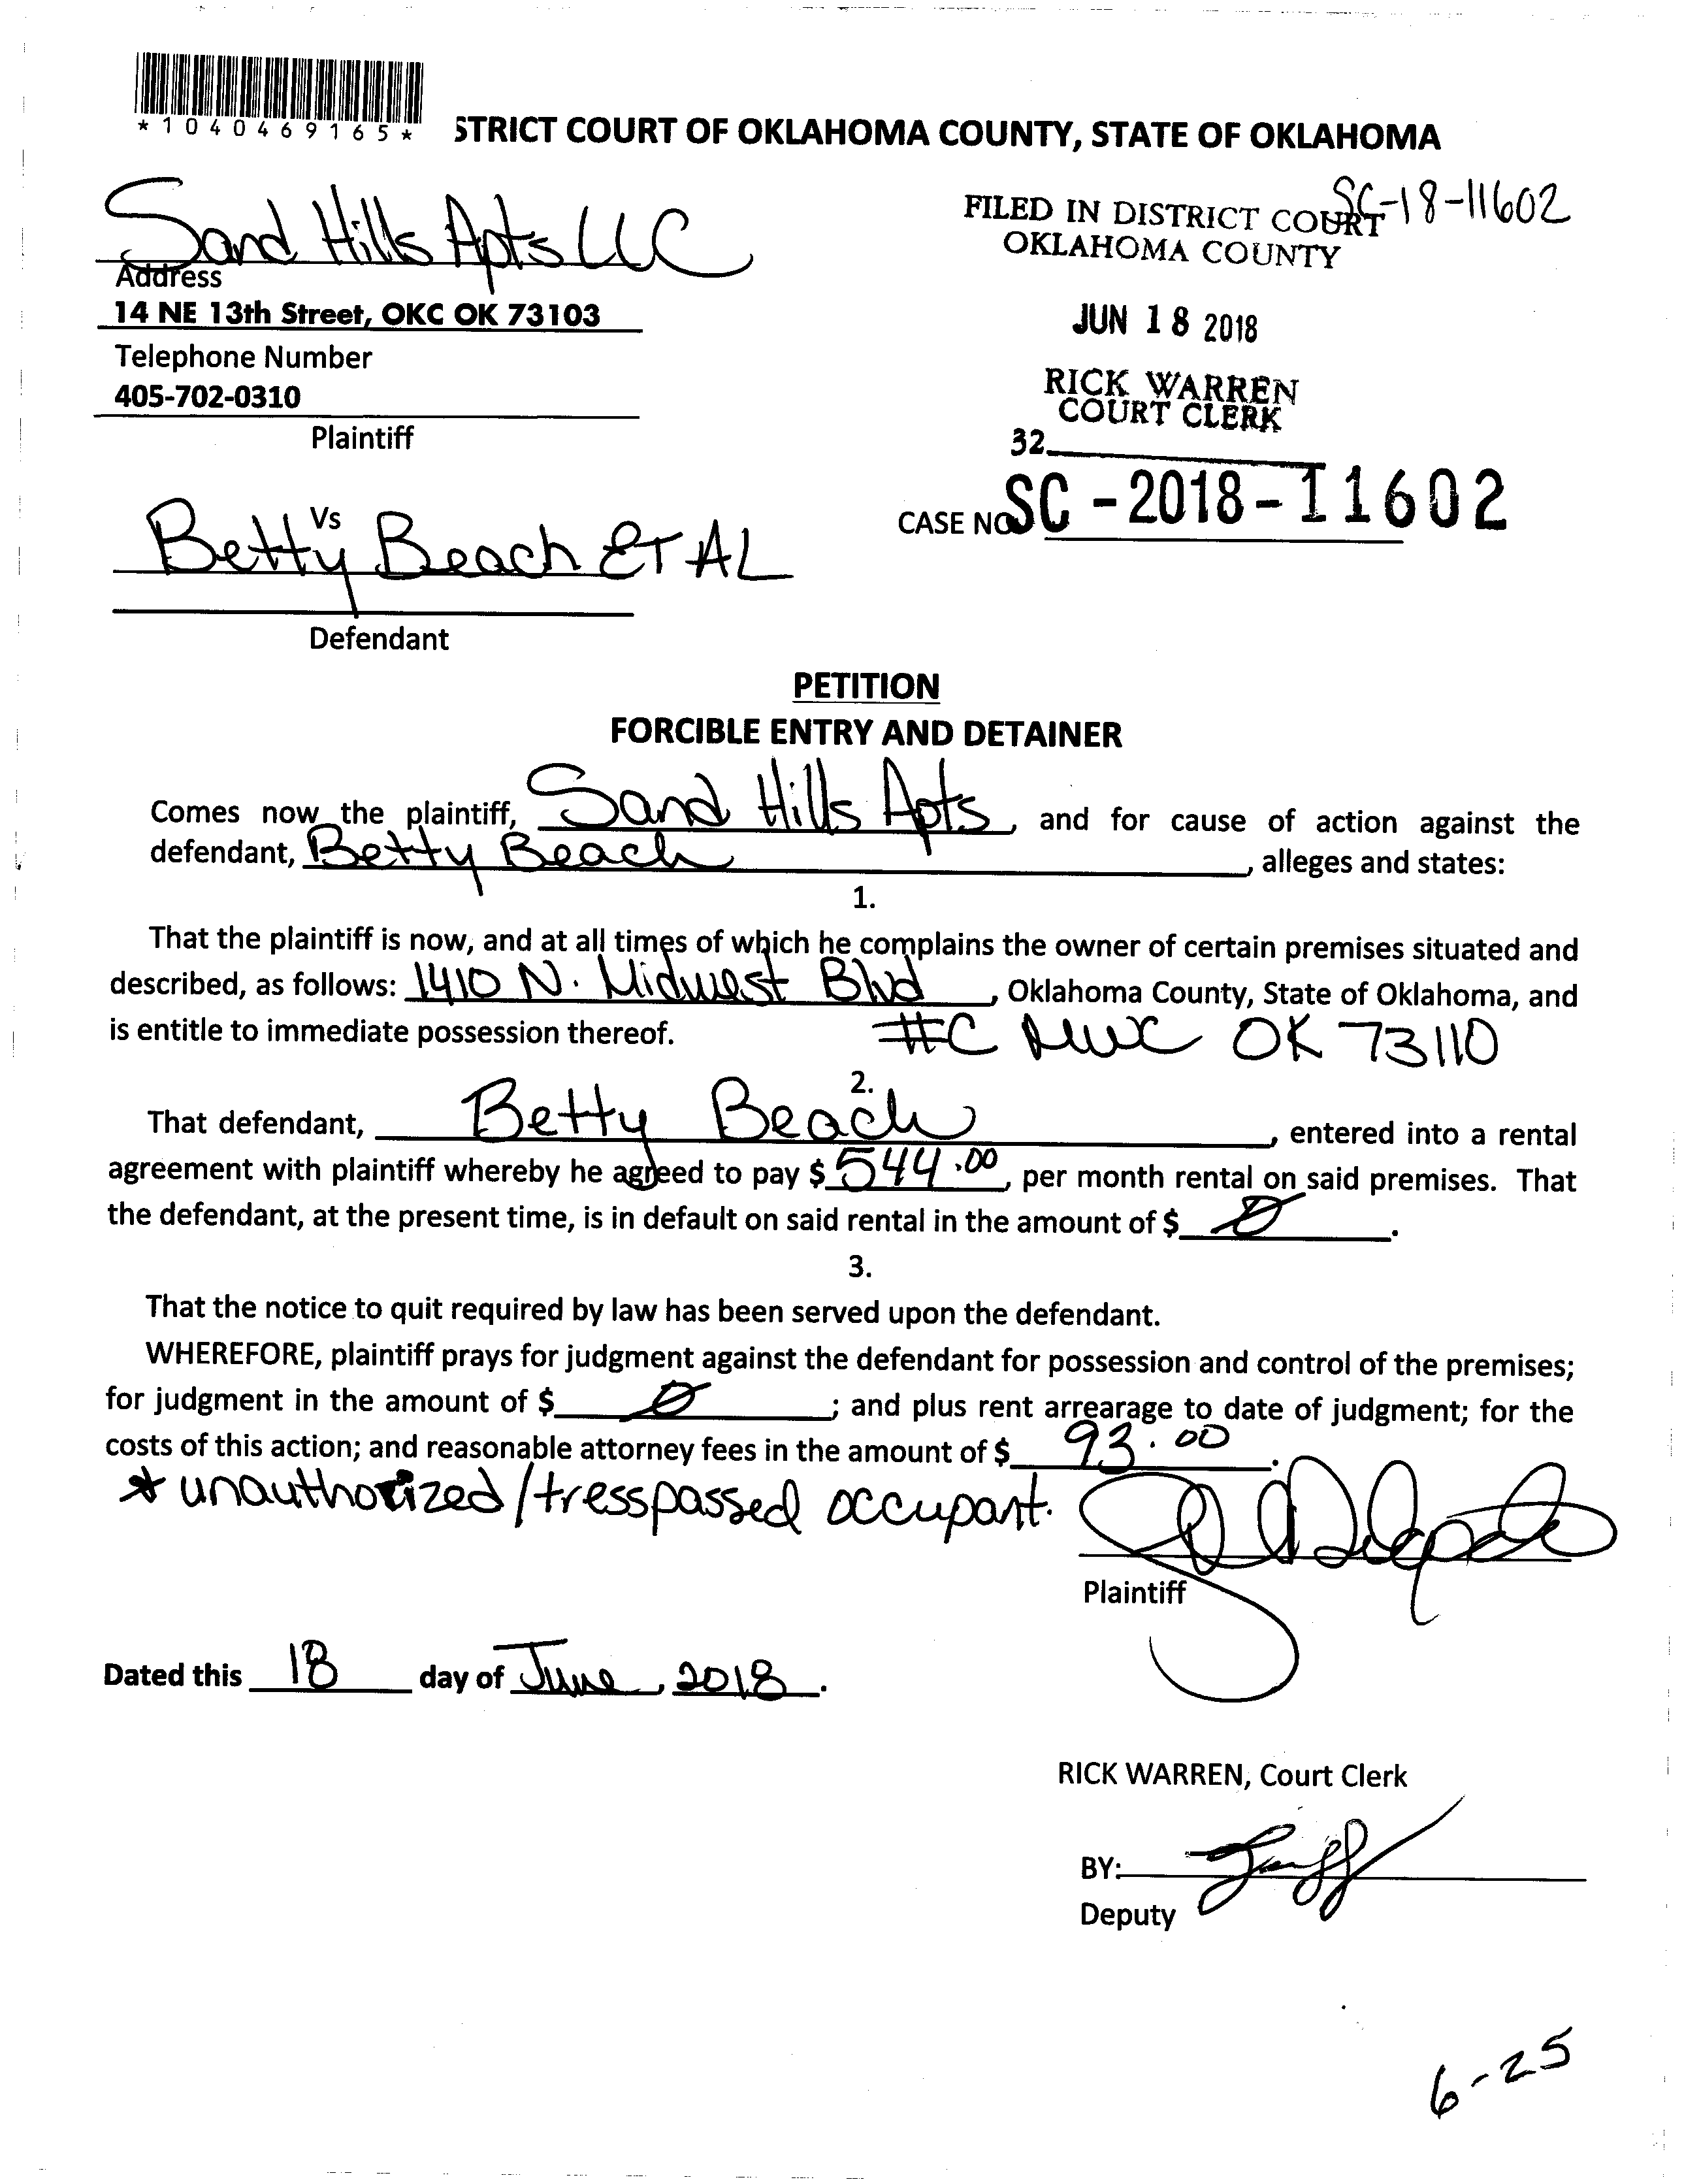 *1040469165*
STRICT COURT OF OKLAHOMA COUNTY, STATE OF OKLAHOMA
SC-18-11602
Sand Hills Apts LLC
FILED IN DISTRICT COURT
OKLAHOMA COUNTY
Address
14 NE 13th Street, OKC OK 73103
JUN 18 2018
Telephone Number
405-702-0310
RICK WARREN
COURT CLERK
Plaintiff
32
Vs
CASE NO SC-2018-11602
Betty Beach ET AL
Defendant
PETITION
FORCIBLE ENTRY AND DETAINER
Comes now the plaintiff, Sand Hills Apts, and for cause of action against the
defendant, Betty Beach, alleges and states:
1.
That the plaintiff is now, and at all times of which he complains the owner of certain premises situated and
described, as follows: 1410 N. Midwest Blvd, Oklahoma County, State of Oklahoma, and
is entitle to immediate possession thereof. #C MWC OK 73110
2.
That defendant, Betty Beach, entered into a rental
agreement with plaintiff whereby he agreed to pay $ 544.00, per month rental on said premises. That
the defendant, at the present time, is in default on said rental in the amount of $ 0.
3.
That the notice to quit required by law has been served upon the defendant.
WHEREFORE, plaintiff prays for judgment against the defendant for possession and control of the premises;
for judgment in the amount of $ 0; and plus rent arrearage to date of judgment; for the
costs of this action; and reasonable attorney fees in the amount of $ 93.00.
* unauthorized/tresspassed occupant.
Plaintiff
Dated this 18 day of June, 2018.
RICK WARREN, Court Clerk
BY:
Deputy
6-25